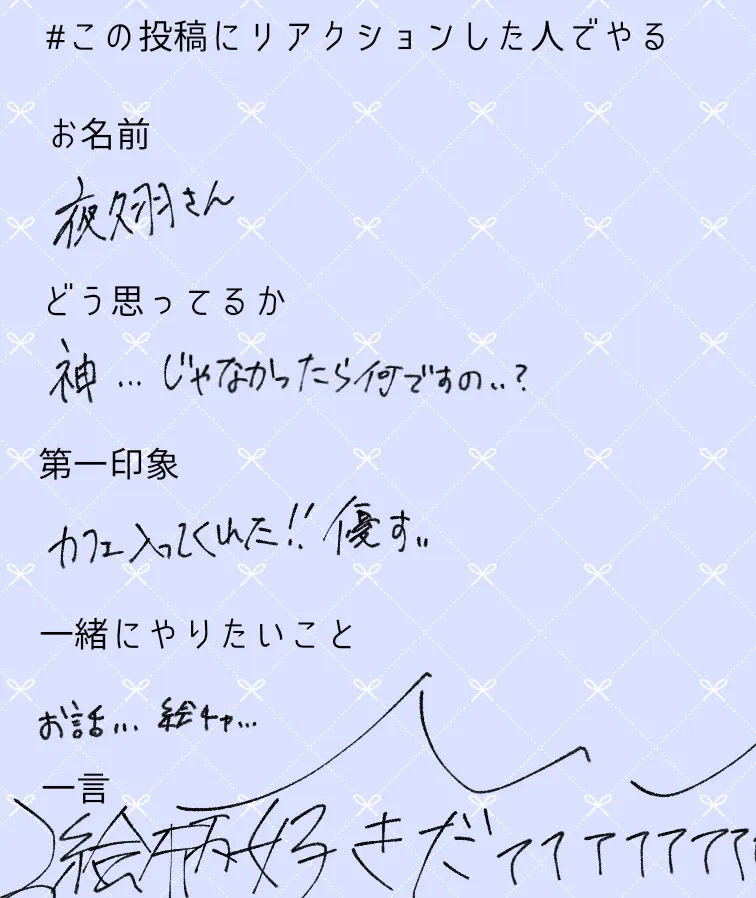 #この投稿にリアクションした人でやる
お名前
夜翊さん
どう思ってるか
神…じゃなかったら何ですの..?
第一印象
カフェ入ってくれた!!優す..
一緒にやりたいこと
お話... 絵チャ...
一言
絵柄好きだァァァァァァァ